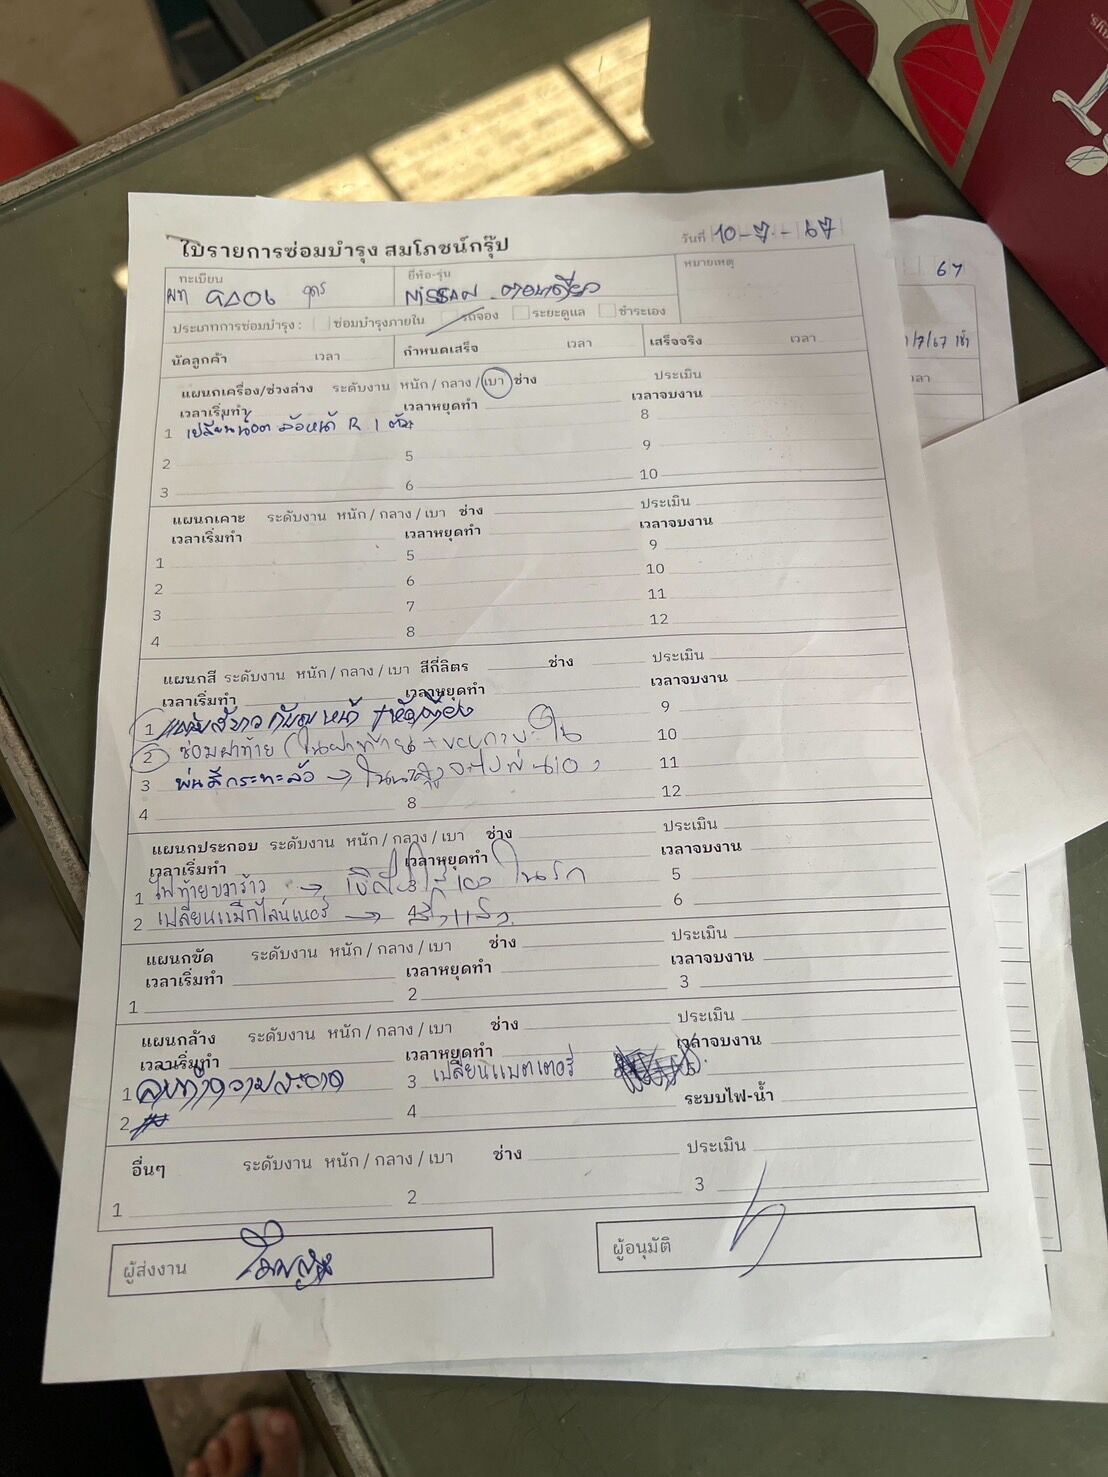 ใบรายการซ่อมบำรุง สมโภชน์กรุ๊ป
วันที่ 10-7-67
ทะเบียน
ยี่ห้อ-รุ่น
หมายเหตุ
NISSAN ตอนเดียว
ประเภทการซ่อมบำรุง : ซ่อมบำรุงภายใน รถจอง ระยะดูแล ชำระเอง
นัดลูกค้า เวลา กำหนดเสร็จ เวลา เสร็จจริง เวลา
แผนกเครื่อง/ช่วงล่าง ระดับงาน หนัก / กลาง / เบา ช่าง ประเมิน
เวลาเริ่มทำ เวลาหยุดทำ เวลาจบงาน
1 เปลี่ยนน็อต ล้อหน้า R 1 ตัว 8
2 5 9
3 6 10
แผนกเคาะ ระดับงาน หนัก / กลาง / เบา ช่าง ประเมิน
เวลาเริ่มทำ เวลาหยุดทำ เวลาจบงาน
1 5 9
2 6 10
3 7 11
4 8 12
แผนกสี ระดับงาน หนัก / กลาง / เบา สีกี่ลิตร ช่าง ประเมิน
เวลาเริ่มทำ เวลาหยุดทำ เวลาจบงาน
1 9
2 ซ่อมฝาท้าย 10
3 พ่นสีกระทะล้อ 11
4 8 12
แผนกประกอบ ระดับงาน หนัก / กลาง / เบา ช่าง ประเมิน
เวลาเริ่มทำ เวลาหยุดทำ เวลาจบงาน
1 ไฟท้ายขวาร้าว → 3 5
2 เปลี่ยนแม็กไลน์เนอร์ → 4 6
แผนกขัด ระดับงาน หนัก / กลาง / เบา ช่าง ประเมิน
เวลาเริ่มทำ เวลาหยุดทำ เวลาจบงาน
1 2 3
แผนกล้าง ระดับงาน หนัก / กลาง / เบา ช่าง ประเมิน
เวลาเริ่มทำ เวลาหยุดทำ เวลาจบงาน
1 3 เปลี่ยนแบตเตอรี่
2 4 ระบบไฟ-น้ำ
อื่นๆ ระดับงาน หนัก / กลาง / เบา ช่าง ประเมิน
1 2 3
ผู้ส่งงาน
ผู้อนุมัติ
67